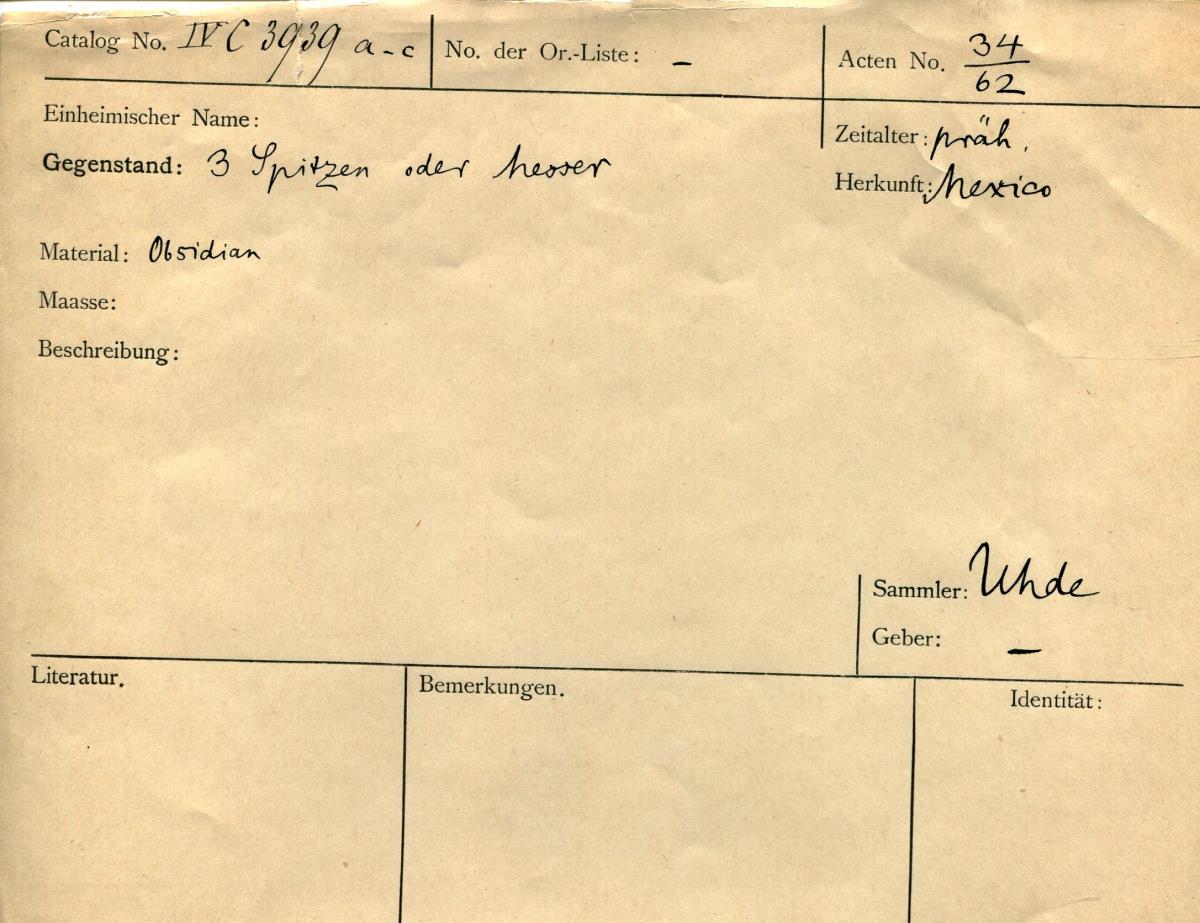 Catalog No. IV C 3939 a-c
No. der Or.-Liste: –
Acten No. 34/62
Einheimischer Name:
Zeitalter: präh.
Gegenstand: 3 Spitzen oder Messer
Herkunft: Mexico
Material: Obsidian
Maasse:
Beschreibung:
Sammler: Uhde
Geber: –
Literatur.
Bemerkungen.
Identität: